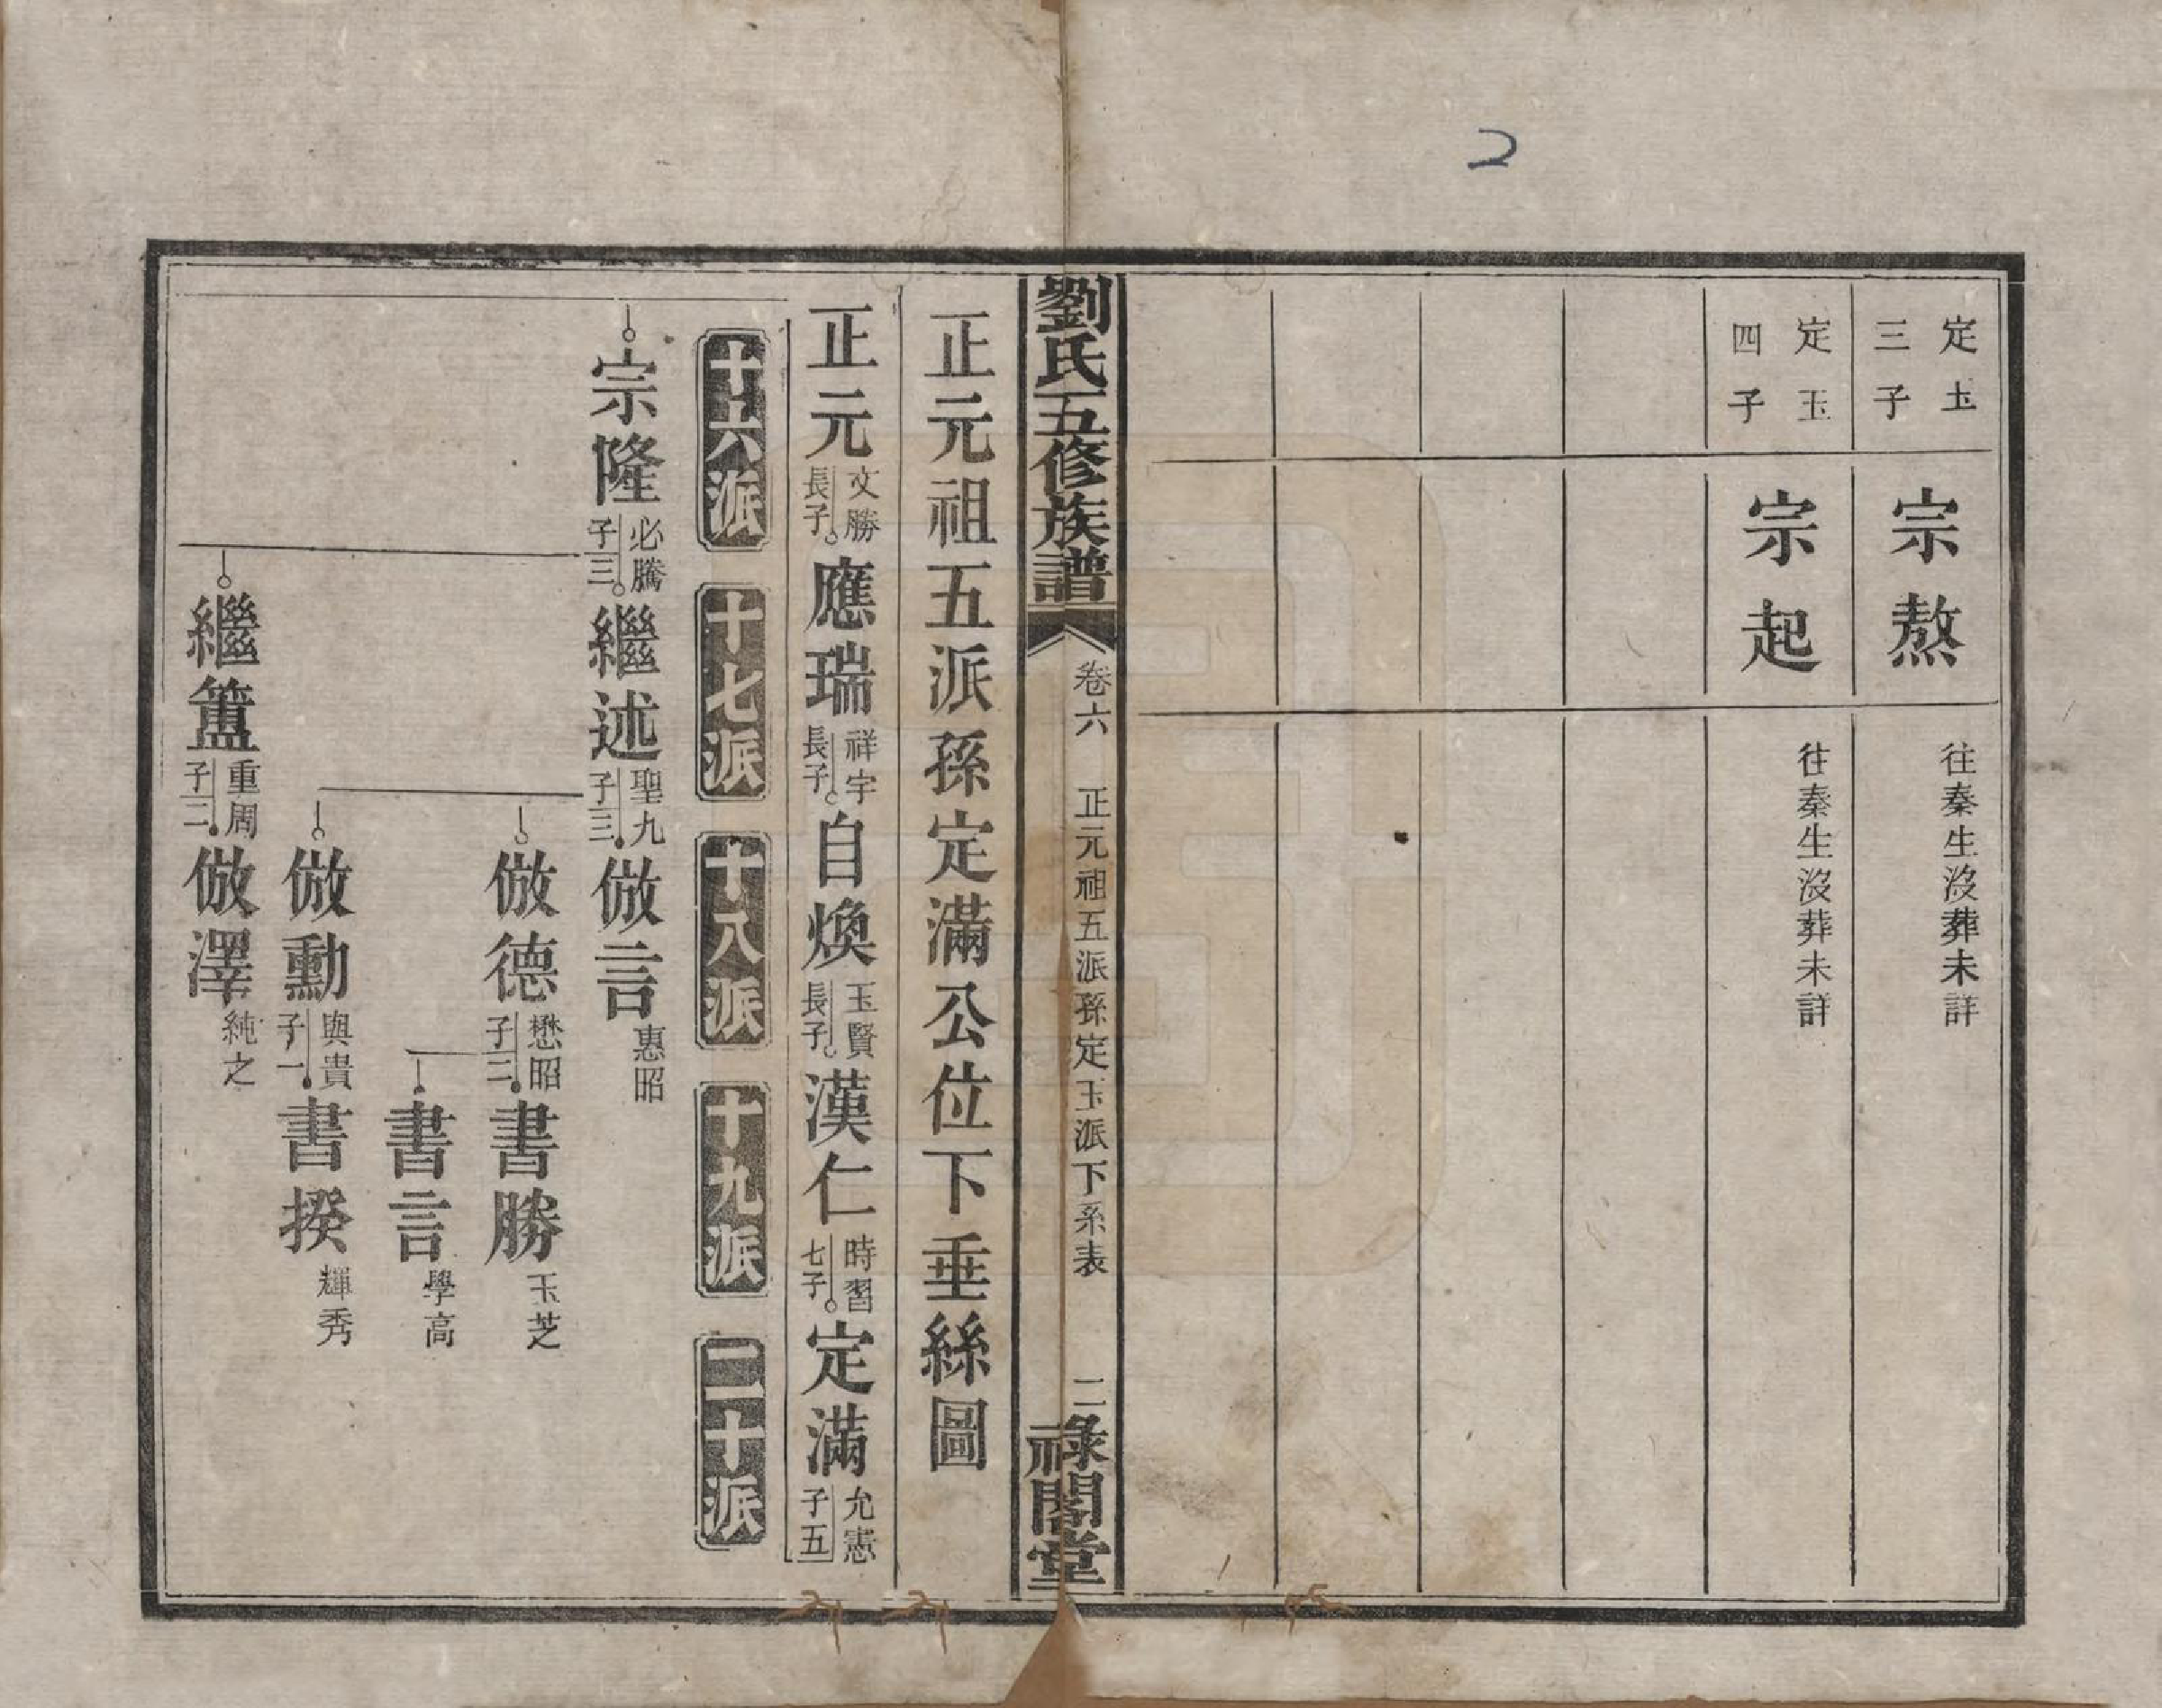 2
定玉
三子
宗熬
往秦生沒葬未詳
定玉
四子
宗起
往秦生沒葬未詳
劉氏五修族譜
卷六
正元祖五派孫定玉派下系表
二
祿閣堂
正元祖五派孫定滿公位下垂絲圖
正元 文勝長子 應瑞 祥宇長子 自煥 玉賢長子 漢仁 時習七子 定滿 允憲子五
十六派 十七派 十八派 十九派 二十派
宗隆 必騰子三 繼述 聖九子三 倣言 惠昭
倣德 懋昭子二 書勝 玉芝
書言 學高
倣勳 與貴子一 書揆 輝秀
繼簠 重周子二 倣澤 純之